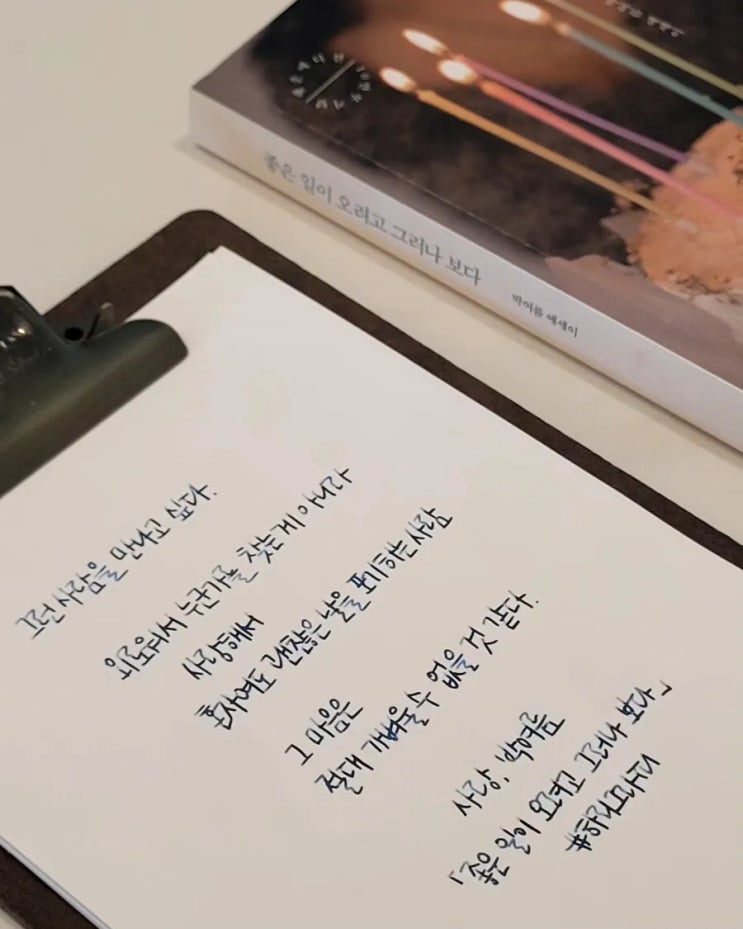 좋은 일이 오려고 그러나 보다
박여름 에세이
그런 사람을 만나고 싶다.
외로워서 누군가를 찾는 게 아니라
사랑해서
혼자여도 괜찮은 날을 포기하는 사람
그 마음은
절대 가벼울 수 없을 것 같다.
사랑, 박여름
「좋은 일이 오려고 그러나 보다」